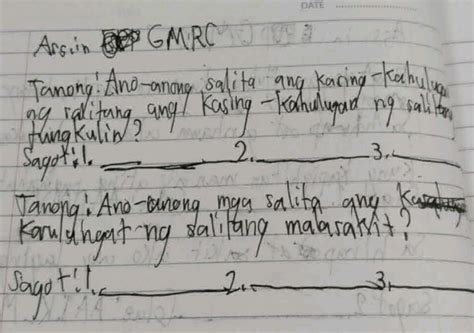 DATE
Assin GMRC
Tanong: Ano-anong salita ang kasing-kahuluga
ng salitang ang kasing-kahulugan ng salitang
tungkulin?
Sagot: 1. 2. 3.
Tanong: Ano-anong mga salita ang
Kasulungat ng salitang malasakit?
Sagot: 1. 2. 3.